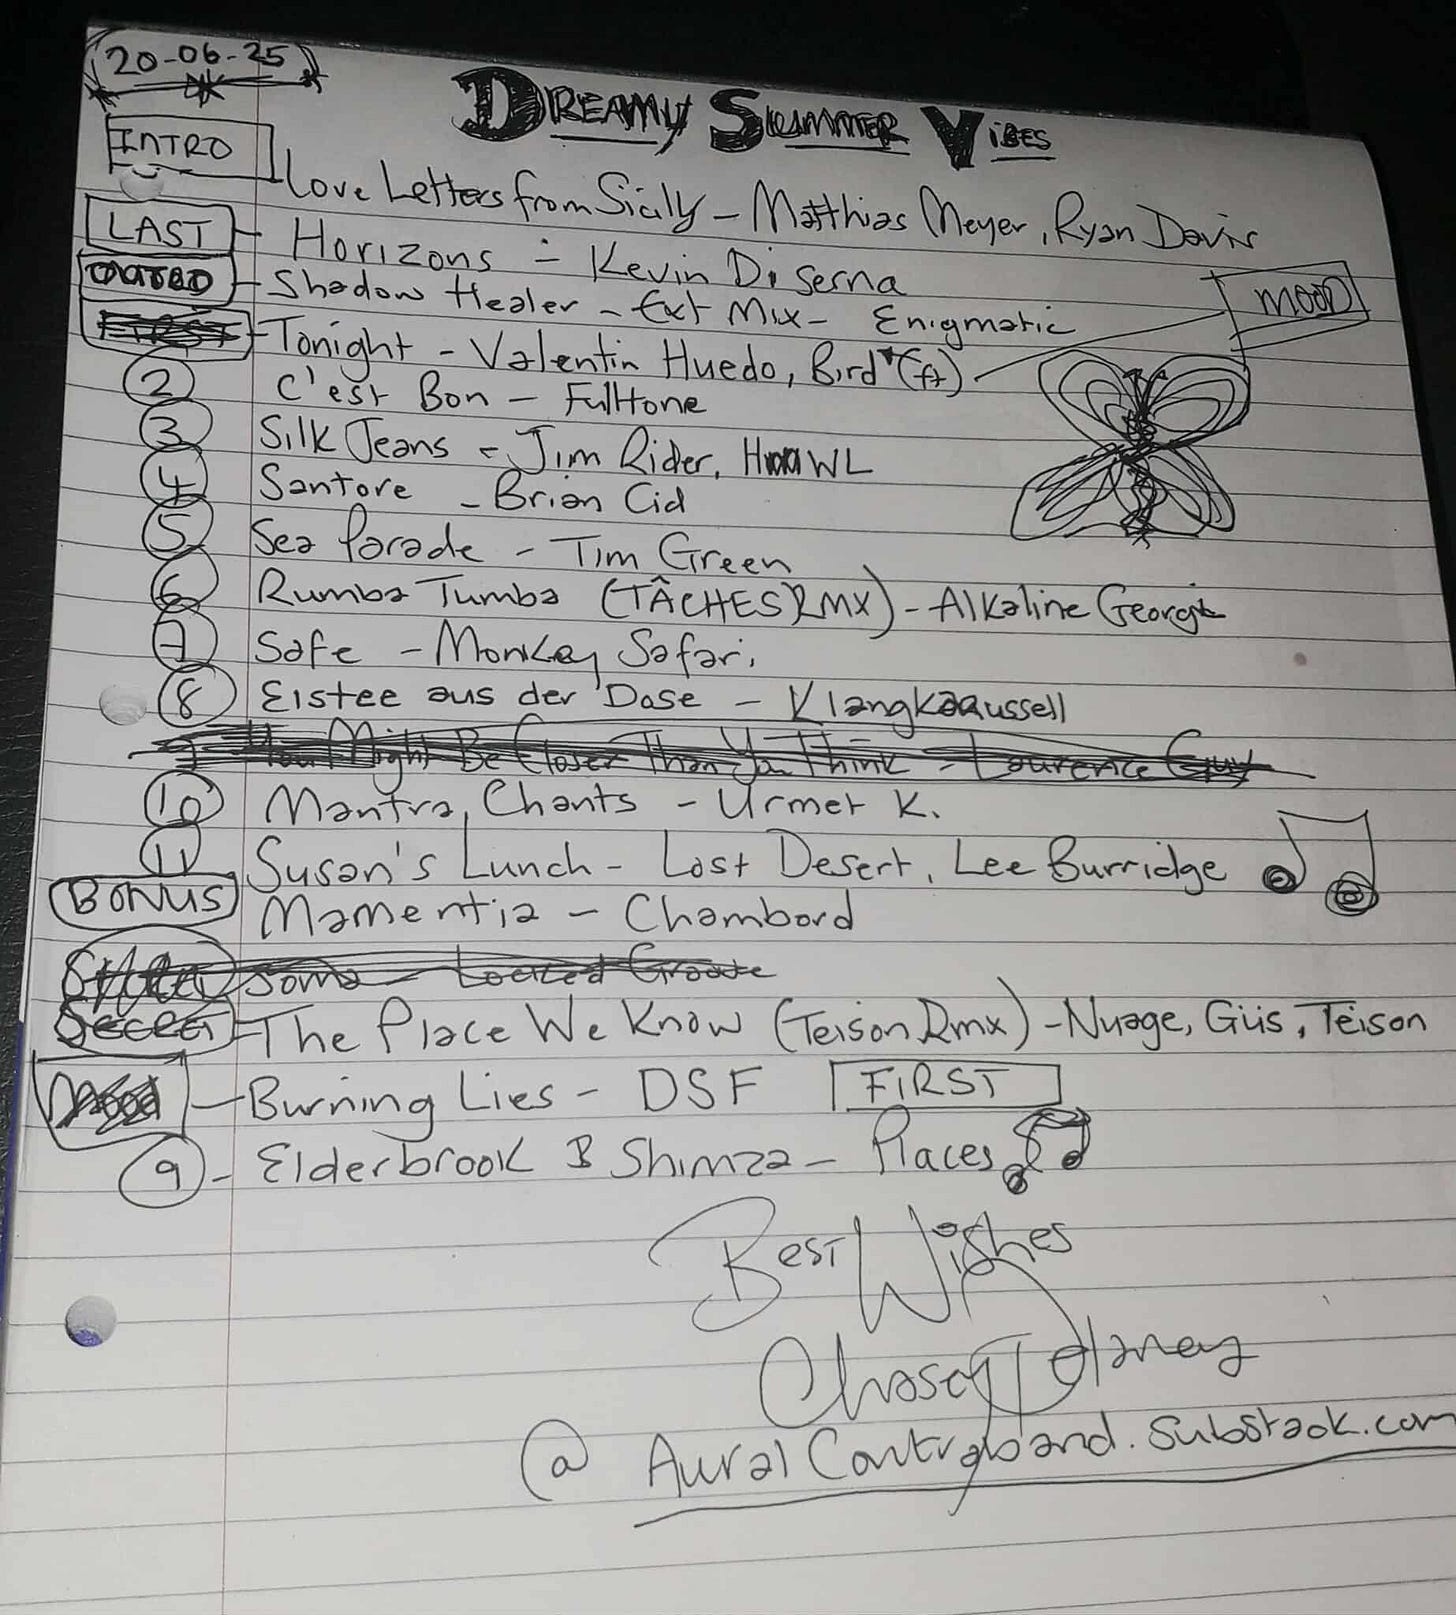 20-06-25
DREAMY SUMMER VIBES
INTRO
Love Letters from Sicily - Matthias Meyer, Ryan Davis
LAST - Horizons - Kevin Di Serna
- Shadow Healer - Ext Mix - Enigmatic
MOOD
FIRST - Tonight - Valentin Huedo, Bird (ft)
2 C'est Bon - Fulltone
3 Silk Jeans - Jim Rider, HAWL
4 Santore - Brian Cid
5 Sea Parade - Tim Green
6 Rumba Tumba (TÂCHES RMX) - Alkaline George
7 Safe - Monkey Safari
8 Eistee aus der Dose - Klangkarussell
You Might Be Closer Than You Think - Laurence Guy
10 Mantra Chants - Urmet K.
11 Susan's Lunch - Lost Desert, Lee Burridge
BONUS Mamentia - Chambord
Soma - Locked Groove
SECRET - The Place We Know (Teison Rmx) - Nuage, Güs, Teison
Mood - Burning Lies - DSF FIRST
9 - Elderbrook & Shimza - Places
Best Wishes
Chasey Delaney
@ AuralContraband.substack.com